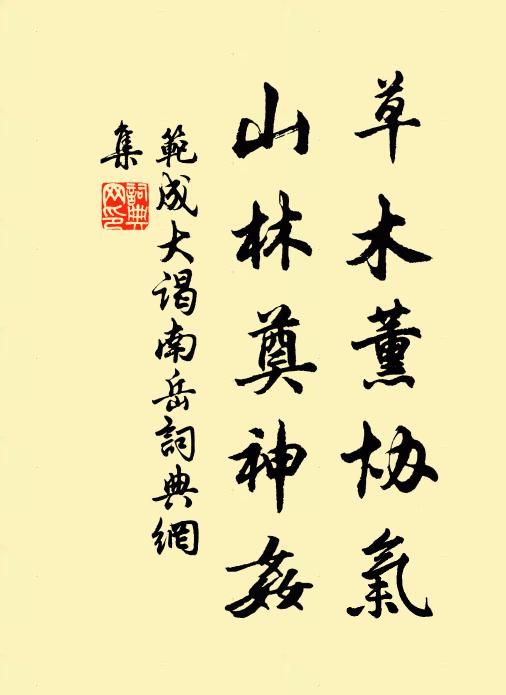 草木薰协氣
山林奠神姦
範成大謁南岳詞典網
集
詞典網印